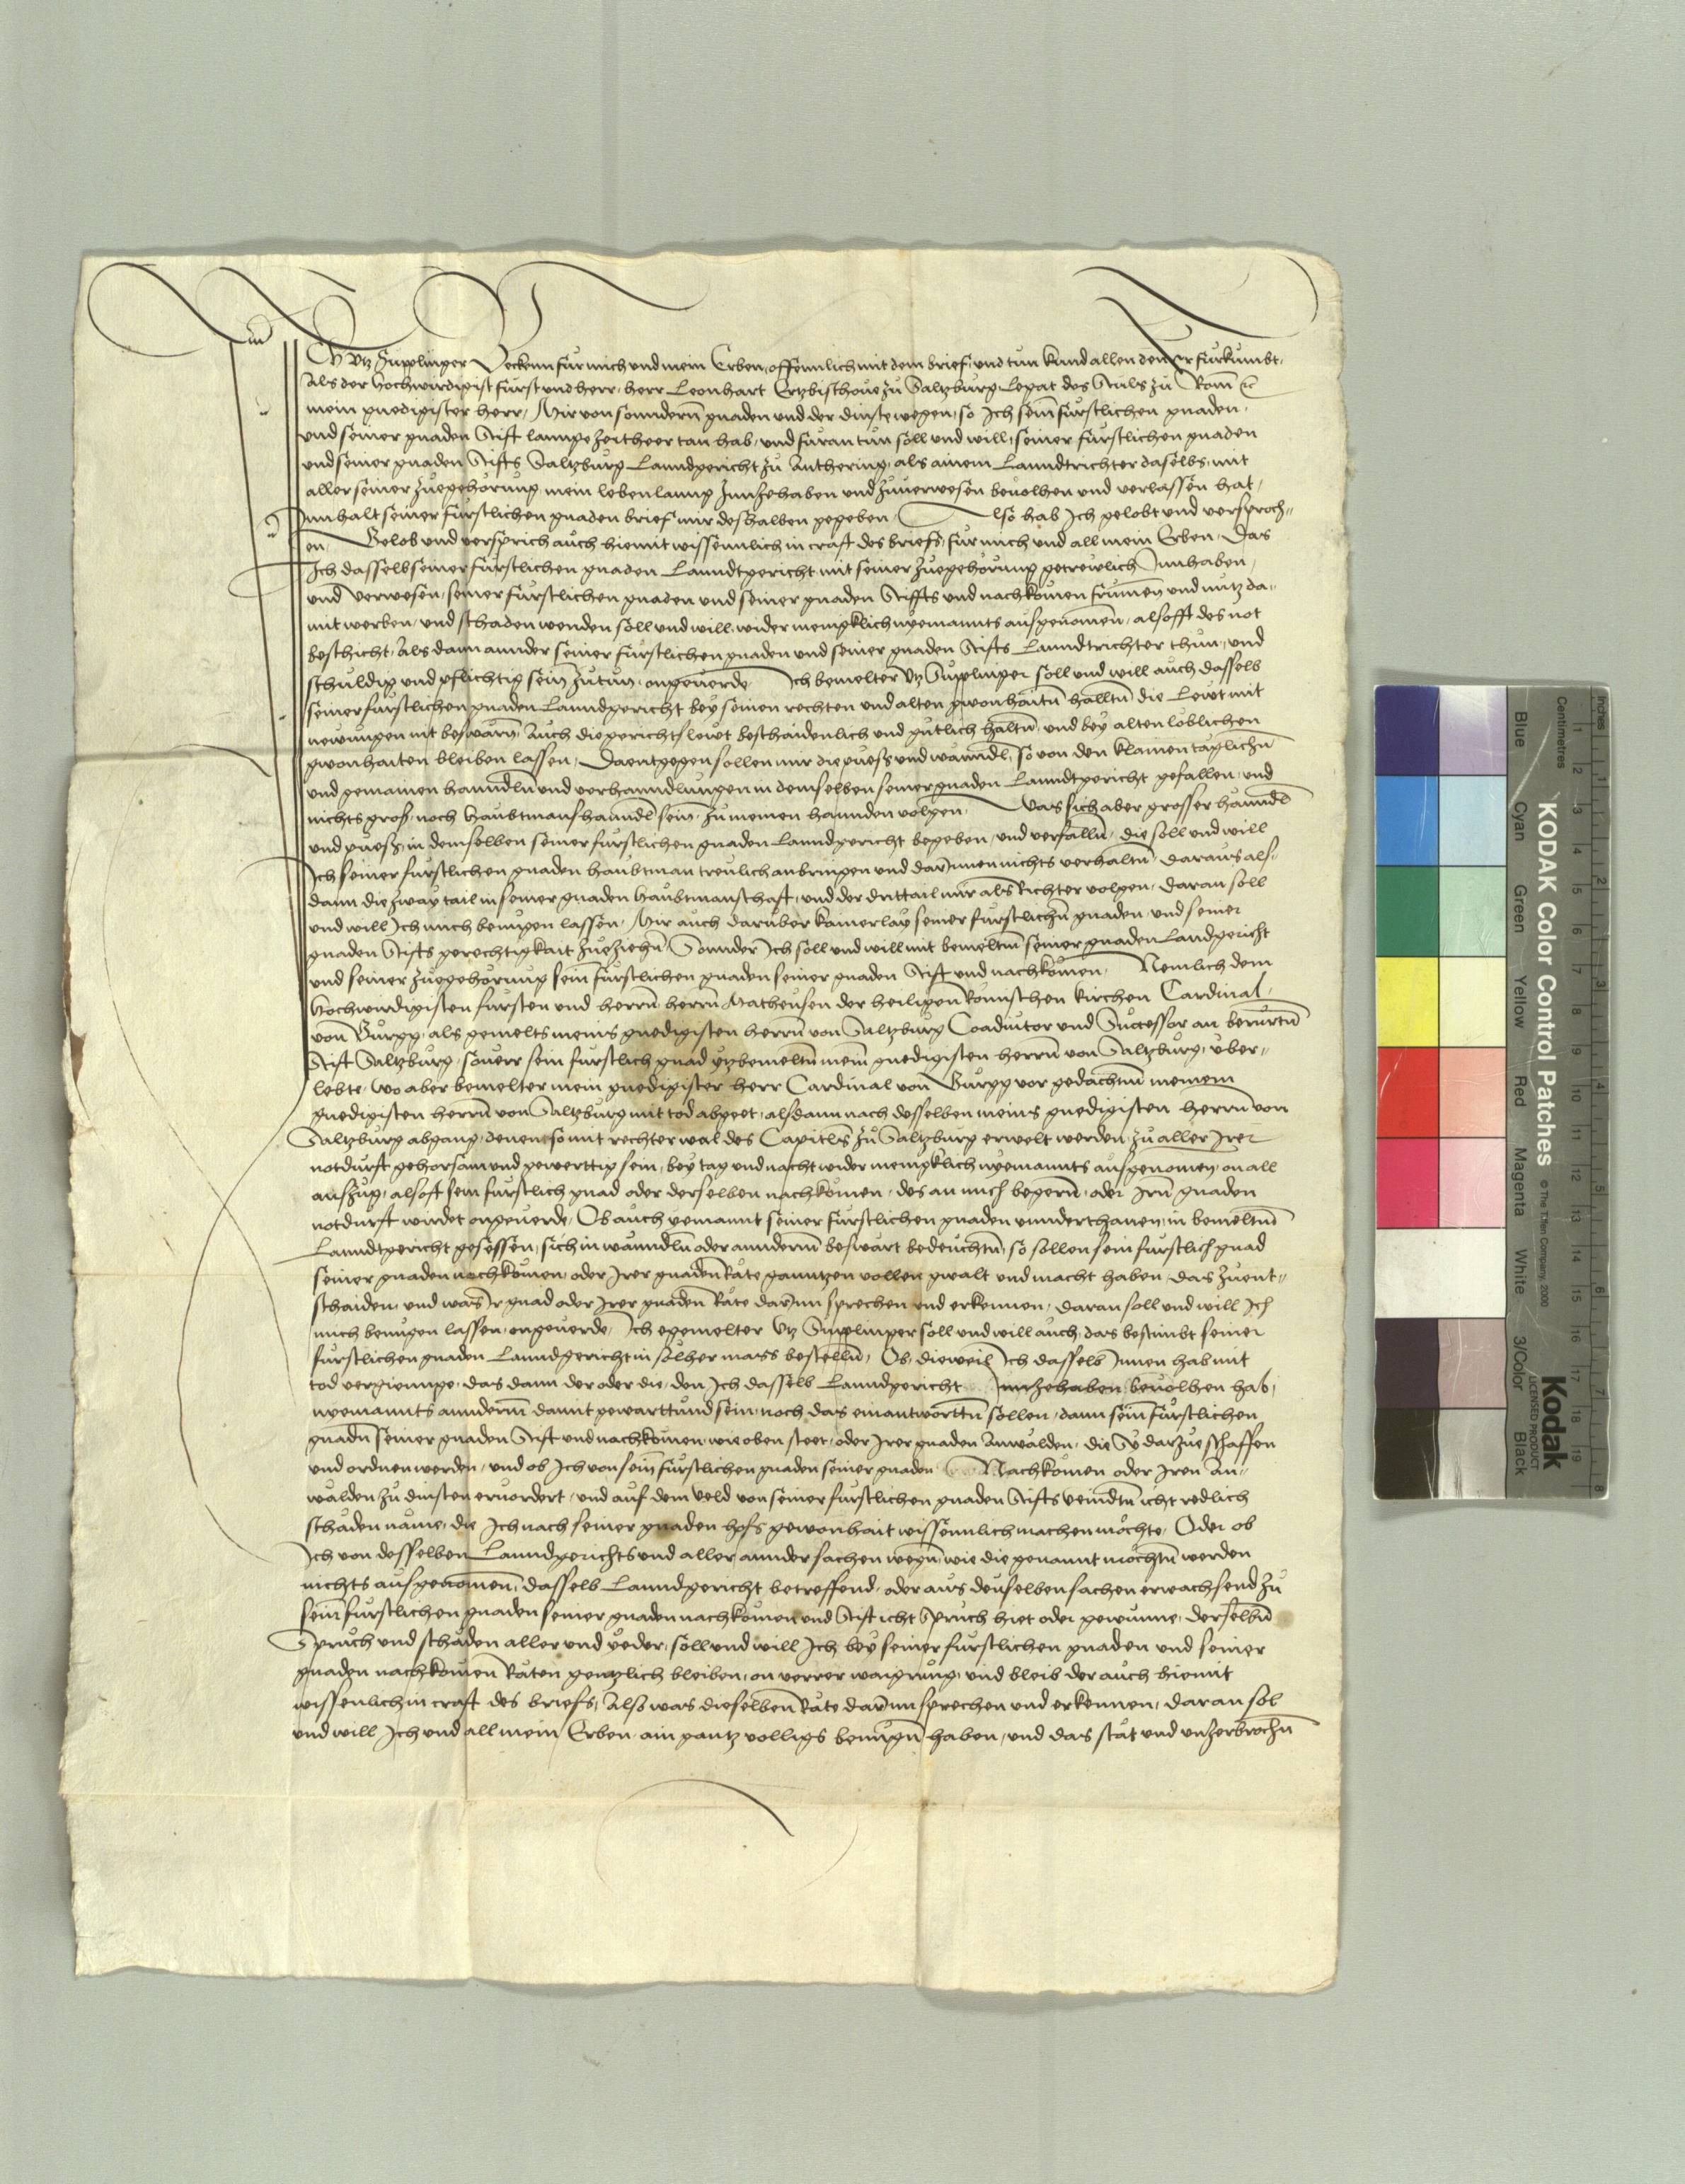 Ich Utz Supplinger Bekenn fur mich und mein Erben, offennlich mit dem brief, und tun kund allen den er furkumbt,
Als der Hochwirdigist Fürst und herr, herr Leonhart Ertzbischove zu Saltzburg Legat des Stuls zu Rom etc
mein gnedigister herr, Mir von sonndern gnaden und der dinste wegen, so Ich sein furstlichen gnaden,
und seiner gnaden Stift lannge zeither tan hab, und furan tun soll und will, seiner furstlichen gnaden
und seiner gnaden Stifts Saltzburg Lanndgericht zu Anthering, als ainem Lanndtrichter daselbs, mit
aller seiner zuegehorung mein lebenlanng Innzehaben und zuverwesen bevolhen und verlassen hat,
Innhalt seiner furstlichen gnaden brief mir deshalben gegeben, Also hab Ich gelobt und versproch-
en, Gelob und versprich auch hiemit wissenntlich in craft des briefs, fur mich und all mein Erben, Das
Ich dasselb seiner furstlichen gnaden Lanndtgericht mit seiner zuegehorung getrewlich Innhaben,
und verwesen, seiner furstlichen gnaden und seiner gnaden Stiffts und nachkomen frumen und nutz da-
mit werben, und schaden wenden soll und will, wider menigklich nyemannts ausgenomen, alsofft des not
beschicht, Als dann annder seiner furstlichen gnaden und seiner gnaden Stifts Lanndtrichter thun, und
schuldig und pflichtig sein zutun, ongeverde Ich bemelter Utz Supplinger soll und will auch dasselb
seiner furstlichen gnaden Lanndgericht bey seinen rechten und alten gwonhaitn halltn, die Lewt mit
newungen nit beswarn, Auch die gerichtslewt beschaidenlich und gutlich haltn, und bey alten loblichen
gwonhaiten bleiben lassen, Daentgegen sollen mir die puess und wanndl, so von den klainen taglichn
und gemainen hanndln und verhanndlungen in demselben seiner gnaden Lanndtgericht gefallen, und
nichts gros, noch haubtmanshanndl sein, zu meinen hannden volgen, Was sich aber grosser hanndl
und puess, in demselben seiner furstlichen gnaden Lanndgericht begeben, und verfalln, die soll und will
Ich seiner furstlichen gnaden haubtman treulich anbringen und darInnen nichts verhaltn, daraus als-
dann die zway tail in seiner gnaden Haubtmanschaft, und der drittail mir als Richter volgen, daran soll
und will Ich mich benugen lassen, Mir auch daruber kainerlay seiner furstlichn gnaden, und seiner
gnaden Stifts gerechtigkait zueziehn, Sonnder Ich soll und will mit bemeltm seiner gnaden Landgericht
und seiner zuegehorung sein furstlichen gnaden seiner gnaden Stift und nachkomen, Nemlich dem
Hochwirdigisten fursten und herrn, herrn Matheusen der heiligen Romischen kirchen Cardinal,
von Gurgg, als gemelts meins gnedigisten herrn von Saltzburg Coadiutor und Successor an berurtn
Stift Saltzburg, souerr sein furstlich gnad ytzbemeltn mein gnedigisten herrn von Saltzburg, uber-
lebte, Wo aber bemelter mein gnedigister herr Cardinal von Gurgg vor gedachtm meinem
gnedigisten herrn von Saltzburg mit tod abgeet, alsdann nach desselben meins gnedigisten herrn von
Saltzburg abgang, denen so mit rechter wal des Capitels zu Saltzburg erwelt werden, zu aller Irer
notdurft gehorsam und gewerttig sein, bey tag und nacht wider menigklich nyemannts ausgenomen, on all
auszug, alsoft sein furstlich gnad oder derselben nachkomen, des an mich begern, oder Irn gnaden
notdurft wirdet ongeverde, Ob auch yemannt seiner furstlichen gnaden unnderthanen, in bemeltm
Lanndtgericht gesessen, sich in wanndln oder anndernn beswart bedeuchtn, so sollen sein furstlich gnad
seiner gnaden nachkomen, oder Irer gnaden Räte ganntzen vollen gwalt und macht haben, das zuent-
schaiden, und was Ir gnad oder Irer gnaden Räte darInn sprechen und erkennen, daran soll und will Ich
mich benugen lassen, ongeverde, Ich egemelter Utz Supplinger soll und will auch, das bestimbt seiner
furstlichen gnaden Lanndgericht in solher mass bestelln, Ob, dieweil Ich dasselb Innen hab mit
tod vergiennge, das dann der oder die, den Ich dasselb Lanndgericht Innzehaben bevolhen hab,
nyemannts anndernn damit gewarttund sein, noch das einantworttn sollen, dann sein furstlichen
gnadn seiner gnaden Stift und nachkomen, wie oben steet, oder Irer gnaden Anwälden, die Sy darzue schaffen
und ordnen werden, und ob Ich von sein furstlichen gnaden seiner gnaden Nachkomen oder Iren An-
walden zu dinsten ervordert, und auf dem veld von seiner furstlichen gnaden Stifts veindtn icht redlich
schaden name, die Ich nach seiner gnaden hofs gewonhait wissenntlich machen mochte, Oder ob
Ich von desselben Lanndgerichts und aller annder sachen wegn, wie die genannt mochtn werden
nichts ausgenomen, dasselb Lanndgericht betreffend, oder aus denselben sachen erwachsend zu
sein furstlichen gnaden seiner gnaden nachkomen und Stift icht Spruch hiet oder gewunne, derselbn
Spruch und schaden aller und yeder, soll und will Ich bey seiner furstlichen gnaden und seiner
gnaden nachkomen Räten genntzlich bleiben, on verrer waigrung, und bleib der auch hiemit
wissenlich in craft des briefs, Also was dieselben Räte darInn sprechen und erkennen, daran sol
und will Ich und all mein Erben ain gantz volligs benugn haben, und das stät und unzerbrochn
KODAK Color Control Patches
© The Tiffen Company, 2000
Kodak
LICENSED PRODUCT
Inches
1 2 3 4 5 6 7 8
Centimetres
1 2 3 4 5 6 7 8 9 10 11 12 13 14 15 16 17 18 19
Blue Cyan Green Yellow Red Magenta White 3/Color Black